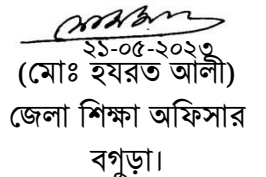 ২১-০৫-২০২৩
(মোঃ হযরত আলী)
জেলা শিক্ষা অফিসার
বগুড়া।